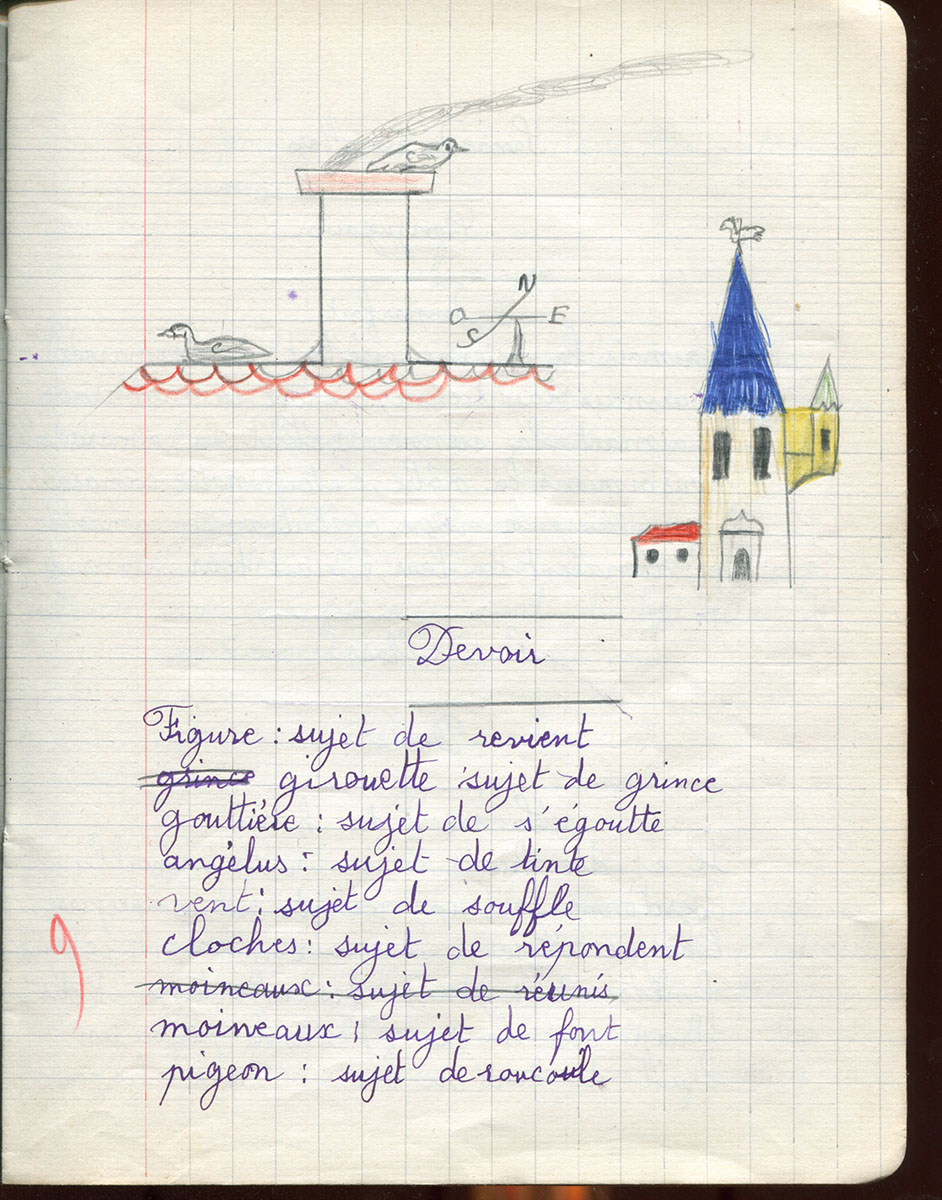 N
O E
S
Devoir
Figure : sujet de revient
grince girouette sujet de grince
gouttière : sujet de s'égoutte
angélus : sujet de tinte
vent : sujet de souffle
cloches : sujet de répondent
moineaux : sujet de réunis
moineaux : sujet de font
9
pigeon : sujet de roucoule